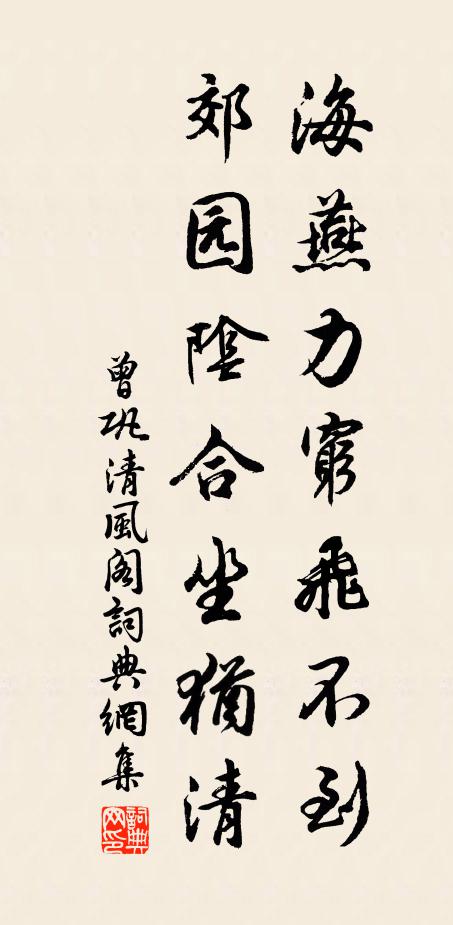 海燕力窮飛不到
郊园陰合坐猶清
曾巩清風阁詞典網集
詞典网印